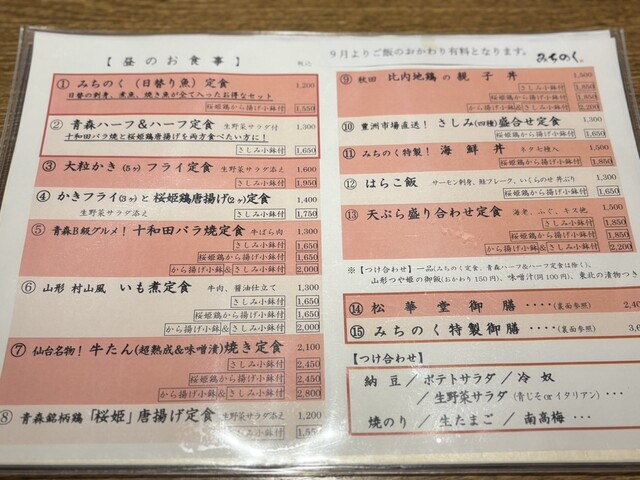 【昼のお食事】 税込
① みちのく(日替り魚)定食 1,200
日替の刺身、煮魚、焼き魚が全て入ったお得なセット
桜姫鶏から揚げ小鉢付 1,550
② 青森ハーフ&ハーフ定食 生野菜サラダ付 1,300
十和田バラ焼と桜姫鶏唐揚げを両方食べたい方に!
さしみ小鉢付 1,650
③ 大粒かき(5ヶ)フライ定食 生野菜サラダ添え 1,600
さしみ小鉢付 1,950
④ かきフライ(3ヶ)と桜姫鶏唐揚げ(2ヶ)定食 1,400
生野菜サラダ添え さしみ小鉢付 1,750
⑤ 青森B級グルメ!十和田バラ焼定食 牛ばら肉 1,300
さしみ小鉢付 1,650
桜姫鶏から揚げ小鉢付 1,650
から揚げ小鉢&さしみ小鉢付 2,000
⑥ 山形 村山風 いも煮定食 牛肉、醤油仕立て 1,300
さしみ小鉢付 1,650
桜姫鶏から揚げ小鉢付 1,650
から揚げ小鉢&さしみ小鉢付 2,000
⑦ 仙台名物!牛たん(超熟成&味噌漬)焼き定食 2,100
さしみ小鉢付 2,450
桜姫鶏から揚げ小鉢付 2,450
から揚げ小鉢&さしみ小鉢付 2,800
⑧ 青森銘柄鶏「桜姫」唐揚げ定食 生野菜サラダ添え 1,200
さしみ小鉢付
9月よりご飯のおかわり有料となります。 みちのく。
⑨ 秋田 比内地鶏の親子丼 1,500
さしみ小鉢付 1,850
桜姫鶏から揚げ小鉢付 1,850
から揚げ小鉢&さしみ小鉢付 2,200
⑩ 豊洲市場直送!さしみ(四種)盛合せ定食 1,300
桜姫鶏から揚げ小鉢付 1,650
⑪ みちのく特製!海鮮丼 ネタ七種入 1,500
桜姫鶏から揚げ小鉢付 1,850
⑫ はらこ飯 サーモン刺身、鮭フレーク、いくらのせ丼ぶり 1,300
桜姫鶏から揚げ小鉢付 1,650
⑬ 天ぷら盛り合わせ定食 海老、ふぐ、キス他 1,500
さしみ小鉢付 1,850
桜姫鶏から揚げ小鉢付 1,850
から揚げ小鉢&さしみ小鉢付 2,200
※【つけ合わせ】一品(みちのく定食、青森ハーフ&ハーフ定食は除く)、
山形つや姫の御飯(おかわり150円)、味噌汁(同100円)、東北の漬物つき
⑭ 松華堂御膳 ････(裏面参照)
⑮ みちのく特製御膳 ････(裏面参照)
【つけ合わせ】
納豆/ポテトサラダ/冷奴
/生野菜サラダ(青じそorイタリアン)
焼のり/生たまご/南高梅 ･･･